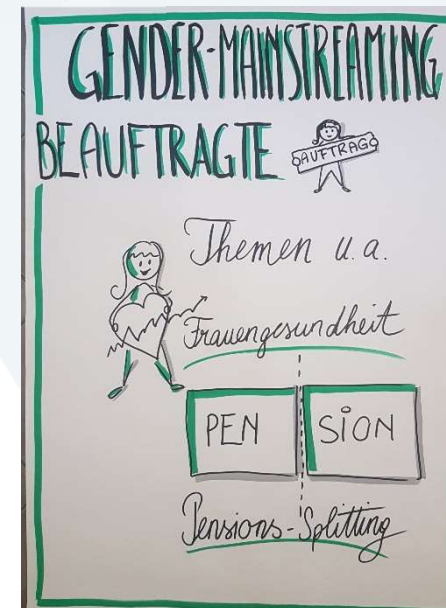 GENDER-MAINSTREAMING
BEAUFTRAGTE
AUFTRAG
Themen u.a.
Frauengesundheit
PEN SION
Pensions-Splitting